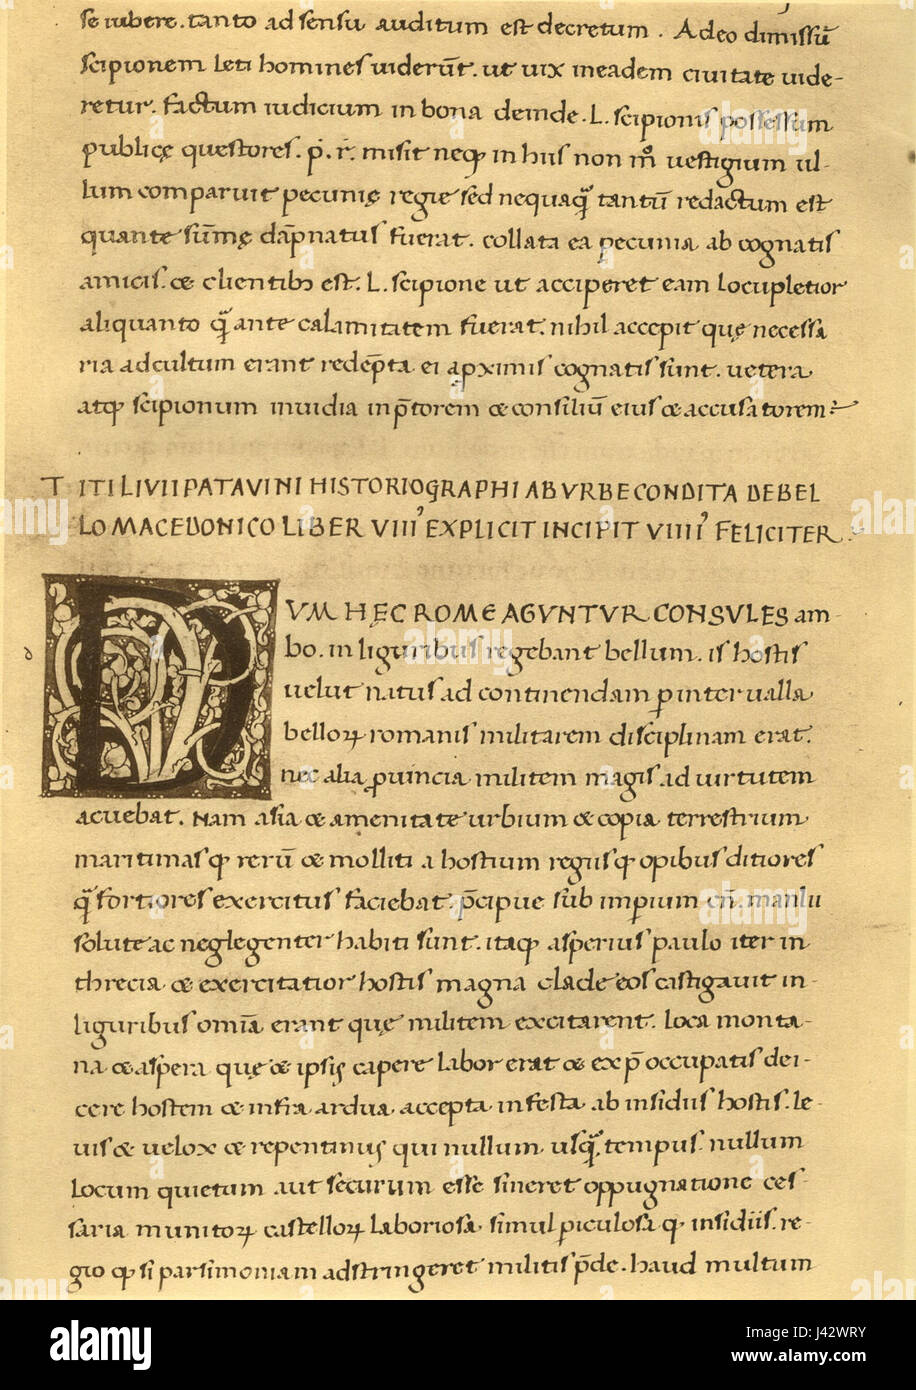 se iubere. tanto ad sensu auditum est decretum. Adeo dimissũ
scipionem leti homines uiderũt. ut uix in eadem ciuitate uide-
retur. factum iudicium in bona deinde. L. scipionis possessum
publicę questores. p̄. r̄. misit neqꝫ in his non mͦ uestigium ul-
lum comparuit pecunię regie sed nequaq̃ tantũ redactum est
quante sũmę dãpnatus fuerat. collata ea pecunia ab cognatis
amicis. & clientibꝫ est. L. scipione ut acciperet eam locupletior
aliquanto q̃ ante calamitatem fuerat. nihil accepit quę necessa
ria ad cultum erant redẽpta ei a ꝓximis cognatis sunt. uetera
atqꝫ scipionum inuidia in p̄torem & consiliũ eius & accusatorem
TITI LIVII PATAVINI HISTORIOGRAPHI AB VRBE CONDITA DE BEL
LO MACEDONICO LIBER VIIIꝰ EXPLICIT INCIPIT VIIIIꝰ FELICITER
DVM HĘC ROME AGVNTVR CONSVLES am-
bo. in liguribus regebant bellum. is hostis
uelut natus ad continendam ꝑ interualla
belloꝝ romanis militarem disciplinam erat.
nec alia ꝓuincia militem magis ad uirtutem
acuebat. Nam asia & amenitate urbium & copia terrestrium
maritimasqꝫ rerũ & molliti a hostium regiisqꝫ opibus ditiores
q̃ fortiores exercitus faciebat. p̄cipue sub imꝑium cñ. manlii
solute ac neglegenter habiti sunt. itaqꝫ asperius paulo iter in
threcia & exercitatior hostis magna clade eos castigauit in-
liguribus omĩa erant quę militem excitarent. loca monta-
na & aspera quę & ipsis capere labor erat & ex p̄occupatis dei-
cere hostem & infra ardua. accepta infesta ab insidiis hostis. le-
uis & uelox & repentinus qui nullum. usq̃. tempus nullum
locum quietum aut securum esse sineret oppugnatione ces-
saria munitoꝝ castelloꝝ laboriosa simul ꝑiculosaqꝫ insidiis. re-
gio qꝫ si parsimoniam adstringeret militis p̄de. haud multum
alamy
Image ID: J42WRY
www.alamy.com